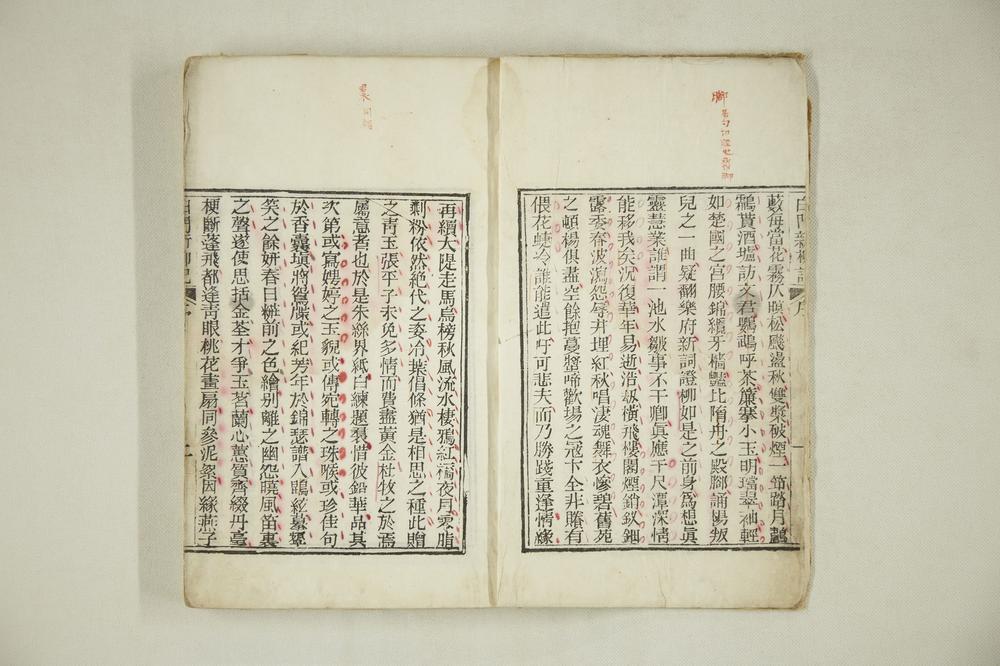 白門新柳記　序　一
數每當花霧仄暝松颸盪秋雙槳破煙一笛路月鸘
鷫貰酒壚訪文君鸚鵡呼茶簾搴小玉明璫翠袖輕
如楚國之宮腰錦纜牙檣豔比隋舟之殿腳誦陽叛
兒之一曲疑翻樂府新詞證柳如是之前身爲想眞
靈慧業誰謂一池水皺事不干卿眞應千尺潭深情
能移我矣況復華年易逝浩刼橫飛樓閣煙銷釵鈿
露委春波瀉怨辱井埋紅秋唱淒魂舞衣慘碧舊苑
之頓楊俱盡空餘抱蔓螿啼歡場之冠卞全非賸有
偎花蜨冷誰能遣此吁可悲夫而乃勝踐重逢情緣
再續大隄走馬烏榜秋風流水棲鴉紅橋夜月零脂
剩粉依然絶代之姿冶葉倡條猶是相思之種此贈
之靑玉張平子未免多情而費盡黃金杜牧之於焉
屬意者也於是朱絲界紙白練題裠惜彼鉛華品其
次第或寫娉婷之玉貌或傳宛轉之珠喉或珍佳句
於香囊填將鴛牒或紀芳年於錦瑟譜入鵾絃蟇顰
笑之餘妍春日糚前之色繪别離之幽怨曉風笛裏
之聲遂使思括金荃才爭玉茗蘭心蕙質齊綴丹毫
梗斷蓬飛都逢靑眼桃花畫扇同參泥絮因緣燕子
白門新柳記　序　二
腳
裠